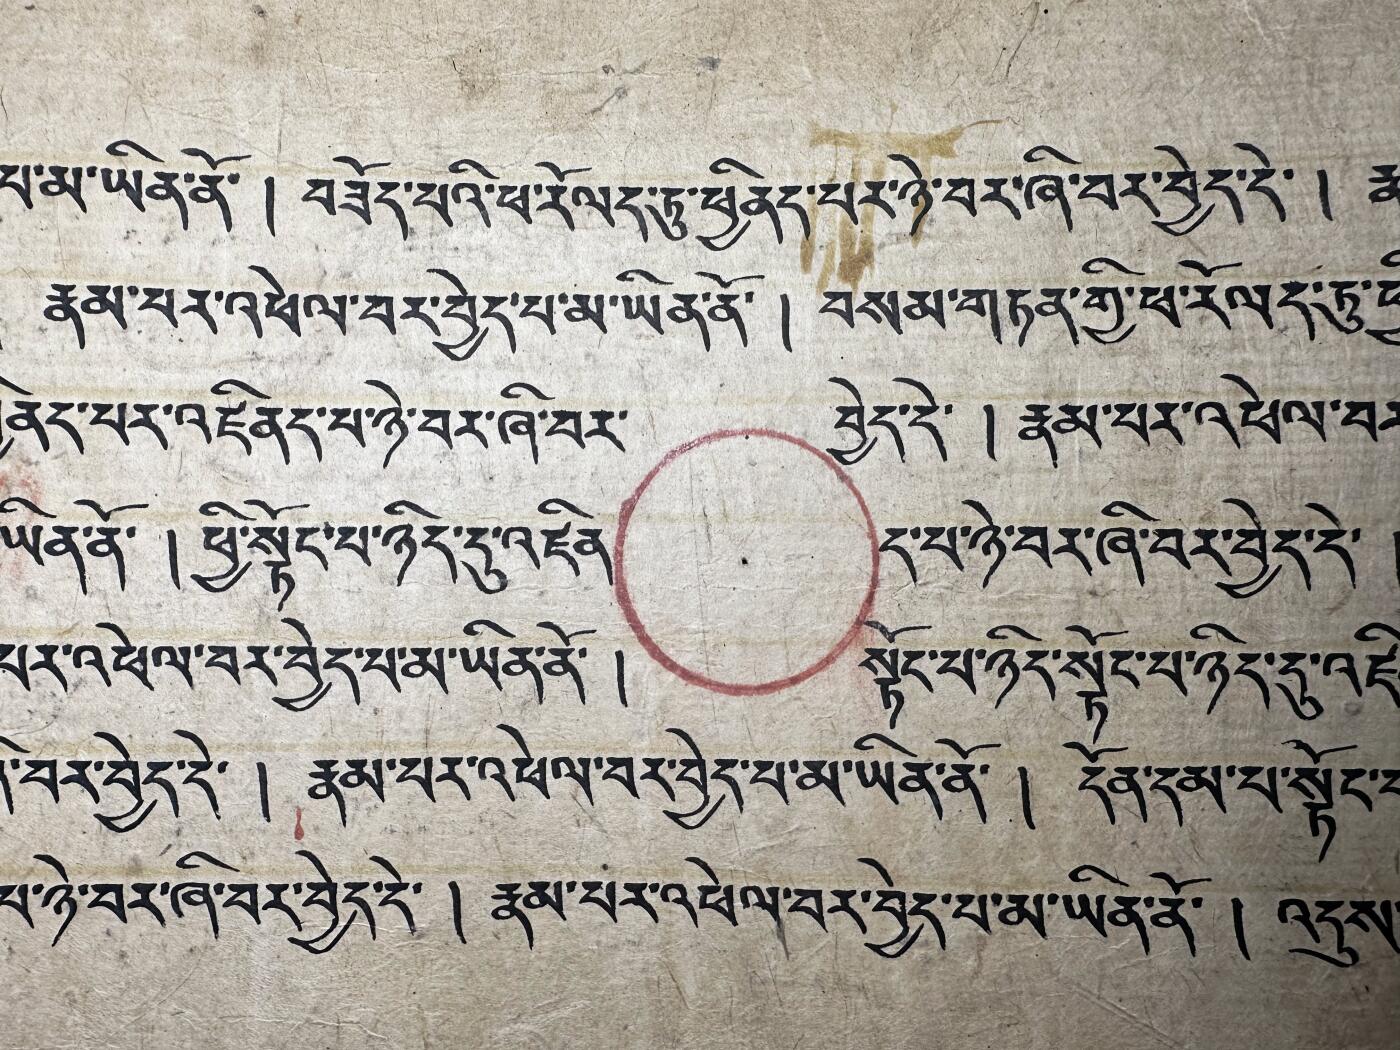 པ་མ་ཡིན་ནོ་ ། བཟོད་པའི་ཕ་རོལད་ཏུ་ཕྱིནད་པར་ཉེ་བར་ཞི་བར་བྱེད་དེ་ །
རྣམ་པར་འཕེལ་བར་བྱེད་པ་མ་ཡིན་ནོ་ ། བསམ་གཏན་གྱི་ཕ་རོལད་ཏུ་
པར་འཛིནད་པ་ཉེ་བར་ཞི་བར་ བྱེད་དེ་ ། རྣམ་པར་འཕེལ་བར
ཡིན་ནོ་ ། ཕྱི་སྟོང་པ་ཉིད་དུ་འཛིནད་པ་ཉེ་བར་ཞི་བར་བྱེད་དེ་ །
པར་འཕེལ་བར་བྱེད་པ་མ་ཡིན་ནོ་ ། སྟོང་པ་ཉིད་སྟོང་པ་ཉིད་དུ་འཛི
བར་བྱེད་དེ་ ། རྣམ་པར་འཕེལ་བར་བྱེད་པ་མ་ཡིན་ནོ་ ། དོན་དམ་པ་སྟོང་
པ་ཉེ་བར་ཞི་བར་བྱེད་དེ་ ། རྣམ་པར་འཕེལ་བར་བྱེད་པ་མ་ཡིན་ནོ་ ། འདུས